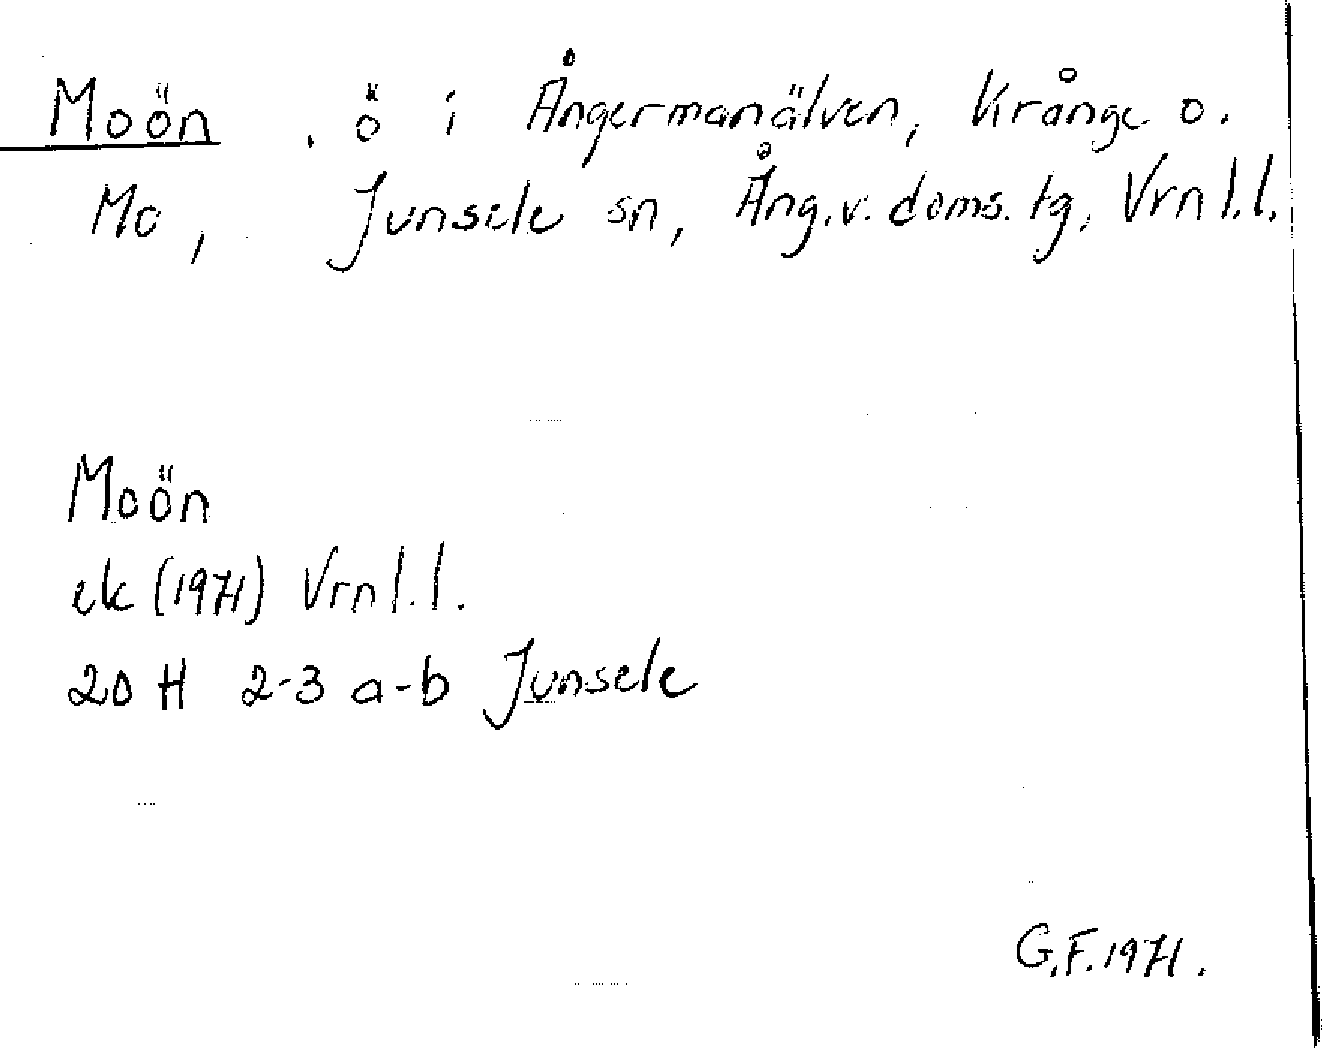 Moön . ö i Ångermanälven, Krånge o.
Mo, Junsele sn, Ång.v. doms. tg, Vrnl.l.
Moön
ek (1971) Vrnl.l.
20 H 2-3 a-b Junsele
G.F. 1971.